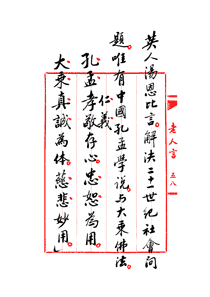 英人湯恩比言。解決二十一世紀社會問
題。唯有中國孔孟學說与大乘佛法。
孔孟仁義孝敬存心。忠恕為用。
大乘真誠為体。慈悲妙用。
老人言 五八